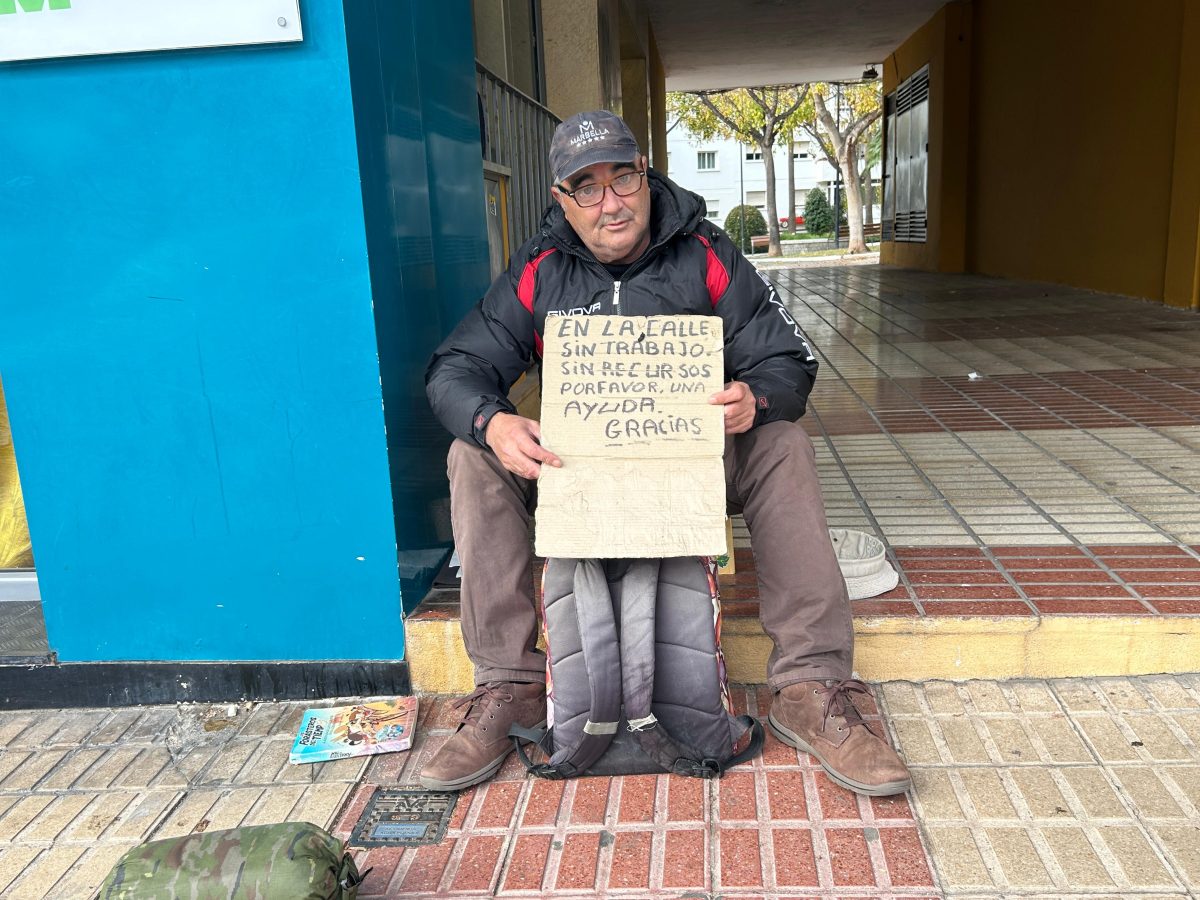 M
MARBELLA
GIVOVA
EN LA CALLE
SIN TRABAJO.
SIN RECURSOS
PORFAVOR, UNA
AYUDA.
GRACIAS